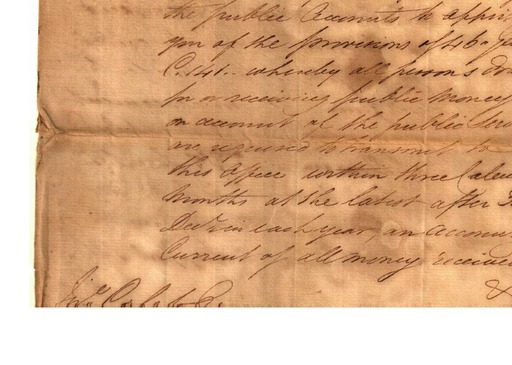 the public Accounts to
you of the provisions of 46 
C. 141. whereby all persons
for or receiving public money
on account of the public
are required to transmit to
this Office within three
months at the latest after
in each year, an Account
Current of all money received
&